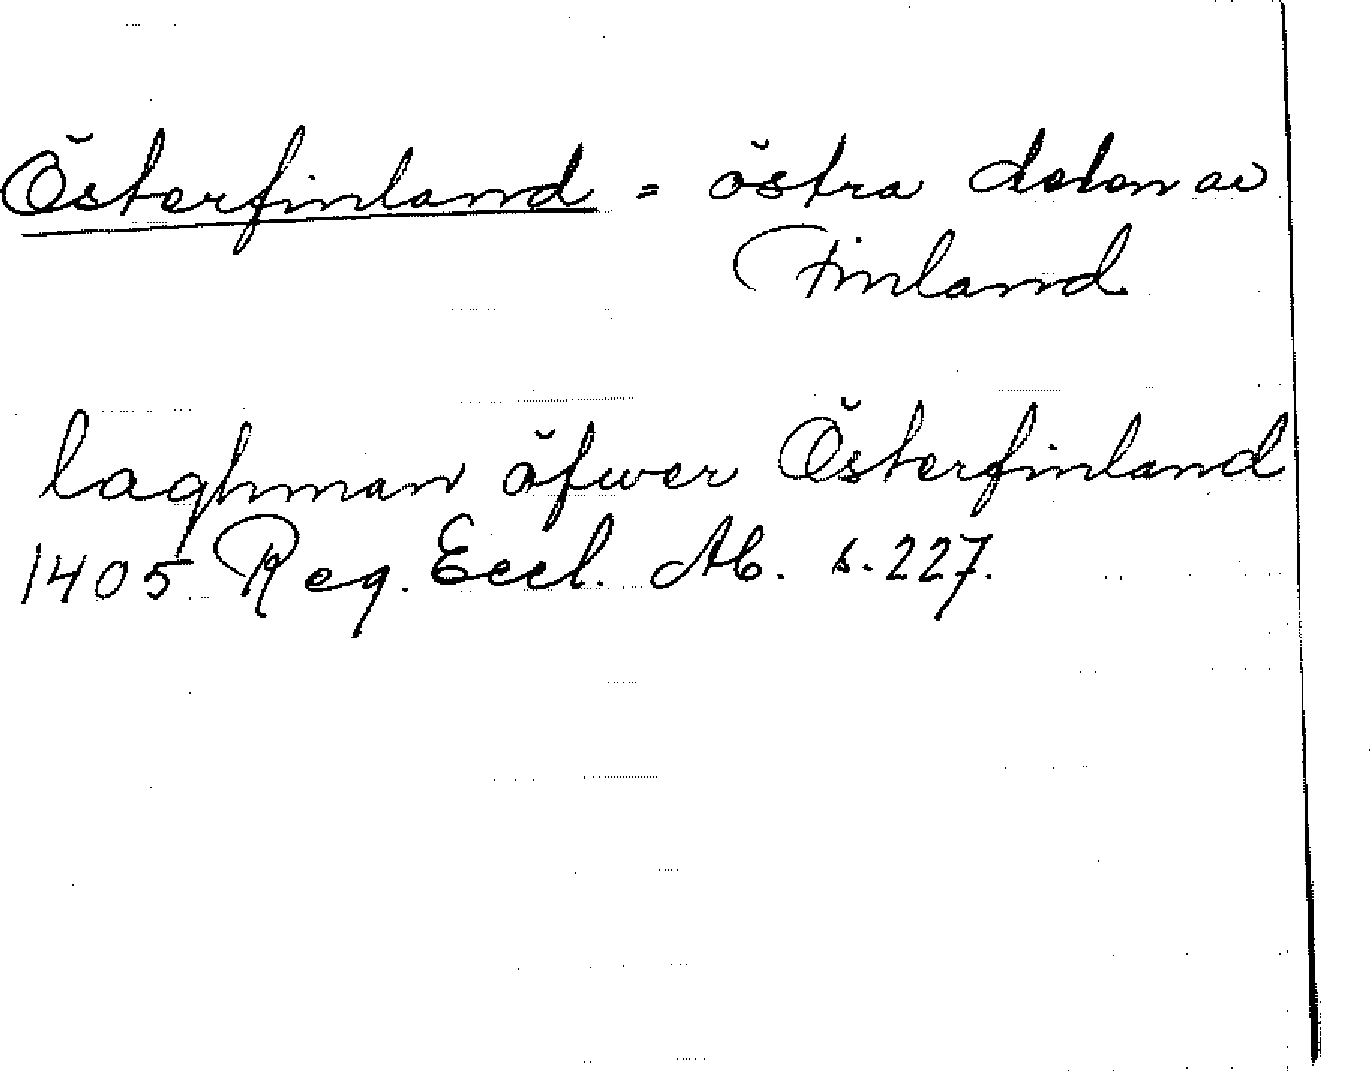 Österfinland = östra delen av
Finland
laghman öfwer Österfinland
1405 Reg. Eccl. Ab. s. 227.